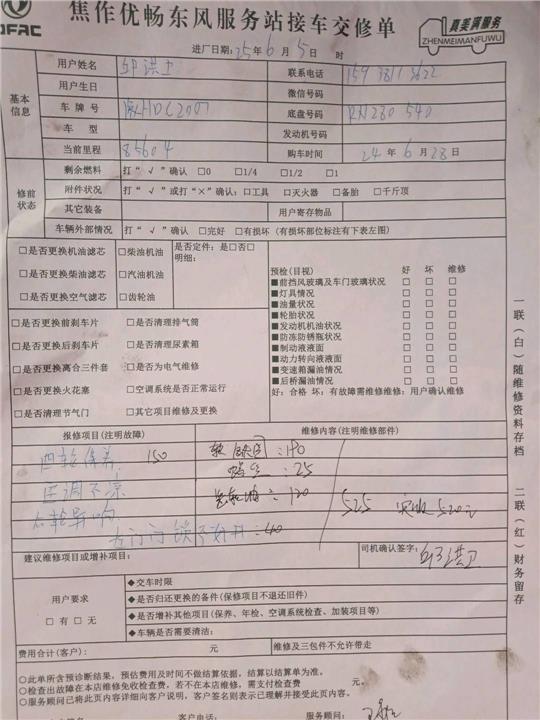 DFAC
焦作优畅东风服务站接车交修单
真美满服务
ZHENMEIMANFUWU
进厂日期:25年6月5日 时
基本信息
用户姓名 联系电话
用户生日 微信号码
车牌号 底盘号码
车型 发动机号码
当前里程 85604 购车时间 24年6月28日
修前状态
剩余燃料 打"√"确认 □0 □1/4 □1/2 □1
附件状况 打"√"或打"×"确认:□工具 □灭火器 □备胎 □千斤顶
其它装备 用户寄存物品
车辆外部情况 打"√"确认 □完好 □有损坏(有损坏部位标注有下表左图)
□是否更换机油滤芯 □柴油机油 是否定件:是□否□
明细:
□是否更换柴油滤芯 □汽油机油
□是否更换空气滤芯 □齿轮油
预检(目视) 好 坏 维修
■前挡风玻璃及车门玻璃状况 □ □ □
■灯具情况 □ □ □
■油量状况 □ □ □
■轮胎状况 □ □ □
■发动机机油状况 □ □ □
■防冻防锈瓶状况 □ □ □
■制动液液面 □ □ □
■动力转向液液面 □ □ □
■变速箱漏油情况 □ □ □
■后桥漏油情况 □ □ □
好:合格 坏:有故障需维修维修:用户确认维修
□是否更换前刹车片 □是否清理排气筒
□是否更换后刹车片 □是否清理尿素箱
□是否更换离合三件套 □是否为电气维修
□是否更换火花塞 □空调系统是否正常运行
□是否清理节气门 □其它项目维修及更换
报修项目(注明故障) 维修内容(注明维修部件)
四轮保养 150 :190
:25
空调不凉 :120
525 实收520元
右轮异响
:40
建议维修项目或增补项目: 司机确认签字:
用户要求
□有 □无
◆交车时限
◆是否归还更换的备件(保修项目不退还旧件)
◆是否增补其他项目(保养、年检、空调系统检查、加装项目等)
◆车辆是否需要清洁:
费用合计(客户): 元 维修及三包件不允许带走
○此单所含预诊断结果,预估费用及时间不做结算依据,结算以结算单为准。
○检查出故障在本店维修免收检查费,若不在本店维修,需支付检查费 元。
○服务顾问已将此页内容详细向客户说明,客户签名则表示已理解并接受此页内容。
客户签名: 客户电话: 服务顾问:
一联(白)随维修资料存档 二联(红)财务留存